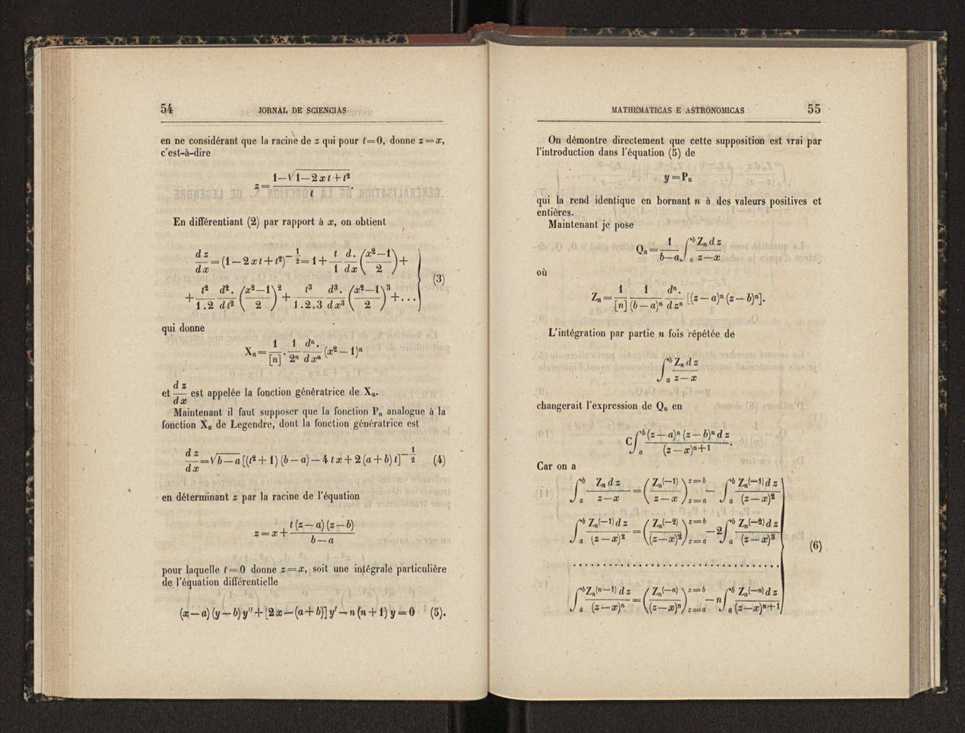 54 JORNAL DE SCIENCIAS
en ne considérant que la racine de z qui pour t=0, donne z=x,
c'est-à-dire
z = (1−√1−2xt+t²)/t.
En différentiant (2) par rapport à x, on obtient
dz/dx = (1−2xt+t²)^−1/2 = 1 + t/1 d./dx ((x²−1)/2) +
+ t²/1.2 d²./dt² ((x²−1)/2)² + t³/1.2.3 d³./dx³ ((x²−1)/2)³ + ... (3)
qui donne
Xₙ = 1/[n] · 1/2ⁿ dⁿ./dxⁿ (x²−1)ⁿ
et dz/dx est appelée la fonction génératrice de Xₙ.
Maintenant il faut supposer que la fonction Pₙ analogue à la
fonction Xₙ de Legendre, dont la fonction génératrice est
dz/dx = √b−a [(t²+1)(b−a)−4tx+2(a+b)t]^−1/2 (4)
en déterminant z par la racine de l'équation
z = x + t(z−a)(z−b)/(b−a)
pour laquelle t=0 donne z=x, soit une intégrale particulière
de l'équation différentielle
(x−a)(y−b)y''+[2x−(a+b)]y'−n(n+1)y=0 (5).
MATHEMATICAS E ASTRONOMICAS 55
On démontre directement que cette supposition est vrai par
l'introduction dans l'équation (5) de
y=Pₙ
qui la rend identique en bornant n à des valeurs positives et
entières.
Maintenant je pose
Qₙ = 1/(b−a) ∫ₐᵇ Zₙdz/(z−x)
où
Zₙ = 1/[n] 1/(b−a)ⁿ dⁿ./dzⁿ [(z−a)ⁿ(z−b)ⁿ].
L'intégration par partie n fois répétée de
∫ₐᵇ Zₙdz/(z−x)
changerait l'expression de Qₙ en
C∫ₐᵇ (z−a)ⁿ(z−b)ⁿdz/(z−x)ⁿ⁺¹.
Car on a
∫ₐᵇ Zₙdz/(z−x) = (Zₙ^(−1)/(z−x)) z=b z=a − ∫ₐᵇ Zₙ^(−1)dz/(z−x)²
∫ₐᵇ Zₙ^(−1)dz/(z−x)² = (Zₙ^(−2)/(z−x)²) z=b z=a − 2∫ₐᵇ Zₙ^(−2)dz/(z−x)³
. . . . . . . . . . . . . . . . . . . . . . . . (6)
∫ₐᵇ Zₙ^(n−1)dz/(z−x)ⁿ = (Zₙ^(−n)/(z−x)ⁿ) z=b z=a − n∫ₐᵇ Zₙ^(−n)dz/(z−x)ⁿ⁺¹